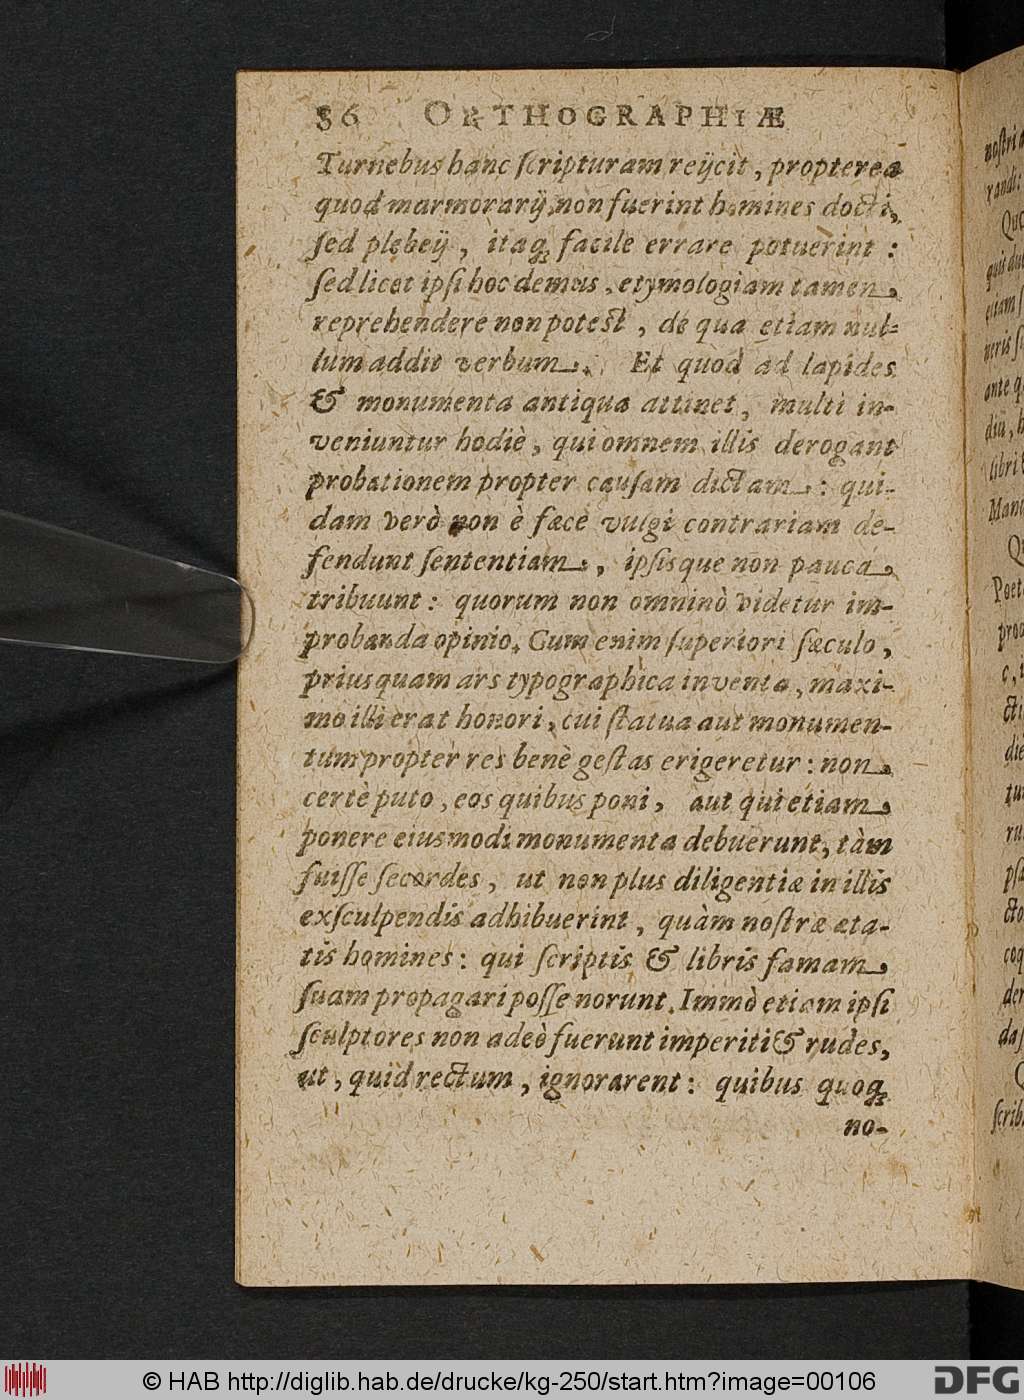 56 ORTHOGRAPHIÆ
Turnebus hanc ſcripturam reijcit, propterea
quod marmorarij, non fuerint homines docti,
ſed plebeij, itaq́; facile errare potuerint:
ſed licet ipſi hoc demus, etymologiam tamen
reprehendere non poteſt, de qua etiam nul-
lum addit verbum. Et quod ad lapides
& monumenta antiqua attinet, multi in-
veniuntur hodiè, qui omnem illis derogant
probationem propter cauſam dictam: qui-
dam verò non è fæce vulgi contrariam de-
fendunt ſententiam, ipſisque non pauca
tribuunt: quorum non omninò videtur im-
probanda opinio. Cum enim ſuperiori ſæculo,
priusquam ars typographica inventa, maxi-
mo illi erat honori, cui ſtatua aut monumen-
tum propter res benè geſtas erigeretur: non
certè puto, eos quibus poni, aut qui etiam
ponere eiusmodi monumenta debuerunt, tàm
fuiſſe ſecordes, ut non plus diligentiæ in illis
exſculpendis adhibuerint, quàm noſtræ æta-
tis homines: qui ſcriptis & libris famam
ſuam propagari poſſe norunt. Immò etiam ipſi
ſculptores non adeò fuerunt imperiti & rudes,
ut, quid rectum, ignorarent: quibus quoq;
no-
noſtri
randi:
Que
Mant
Poet
© HAB http://diglib.hab.de/drucke/kg-250/start.htm?image=00106
DFG